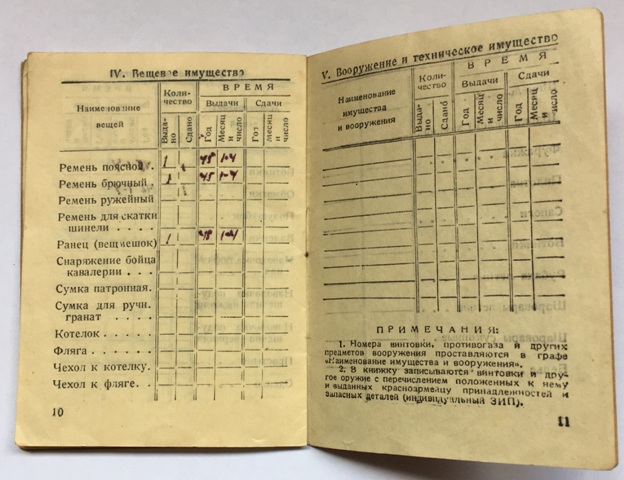 IV. Вещевое имущество
Наименование
вещей
Коли-
чество
ВРЕМЯ
Выдачи
Сдачи
Выда-
но
Сдано
Год
Месяц
и
число
Гот
месяц
и
число
Ремень поясной . 1 48 1-4
Ремень брючный . 1 45 1-4
Ремень ружейный
Ремень для скатки
шинели . . . .
Ранец (вещмешок) 1 48 1-4
Снаряжение бойца
кавалерии . . . .
Сумка патронная.
Сумка для ручн.
гранат . . . .
Котелок . . . . .
Фляга . . . . . .
Чехол к котелку.
Чехол к фляге. .
10
V. Вооружение и техническое имущество
Наименование
имущества
и вооружения
Коли-
чество
ВРЕМЯ
Выдачи
Сдачи
Выда-
но
Сдано
Год
Месяц
и
число
Год
Месяц
и
число
ПРИМЕЧАНИЯ:
1. Номера винтовки, противогаза и других
предметов вооружения проставляются в графе
«Наименование имущества и вооружения».
2. В книжку записываются винтовки и дру-
гое оружие с перечислением положенных к нему
и выданных красноармейцу принадлежностей и
запасных деталей (индивидуальный ЗИП).
11